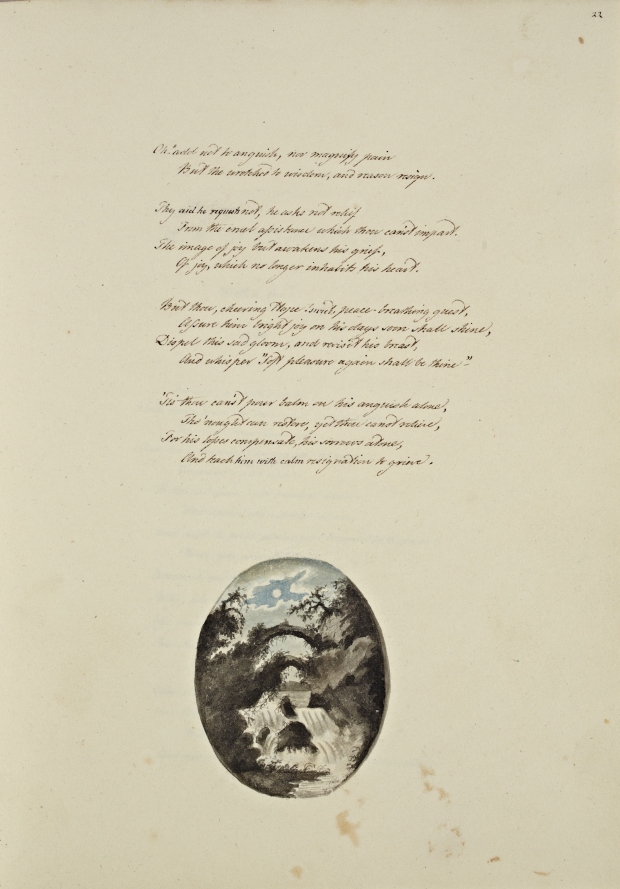 22
Oh! add not to anguish, nor magnify pain
But the wretched to wisdom, and reason resign.
Thy aid he requests not, he asks not relief
From the cruel assistance which thou canst impart.
The image of joy but awakens his grief,
Of joy, which no longer inhabits his heart.
But thou, cheering Hope! sweet, peace-breathing guest,
Assure him bright joy on his days soon shall shine,
Dispel this sad gloom, and revisit his breast,
And whisper "Soft pleasure again shall be thine"
'Tis thou can'st pour balm on his anguish alone,
Tho' nought can restore, yet thou canst relieve,
For his losses compensate, his sorrows atone,
And teach him with calm resignation to grieve.